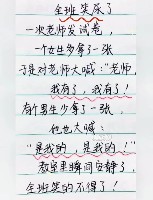 全班笑尿了
一次老师发试卷，
一个女生少拿了一张
于是对老师大喊："老师，
我有了，我有了！
有个男生少拿了一张，
他也大喊：
"是我的，是我的！"
教室里瞬间安静了，
全班笑的不得了！